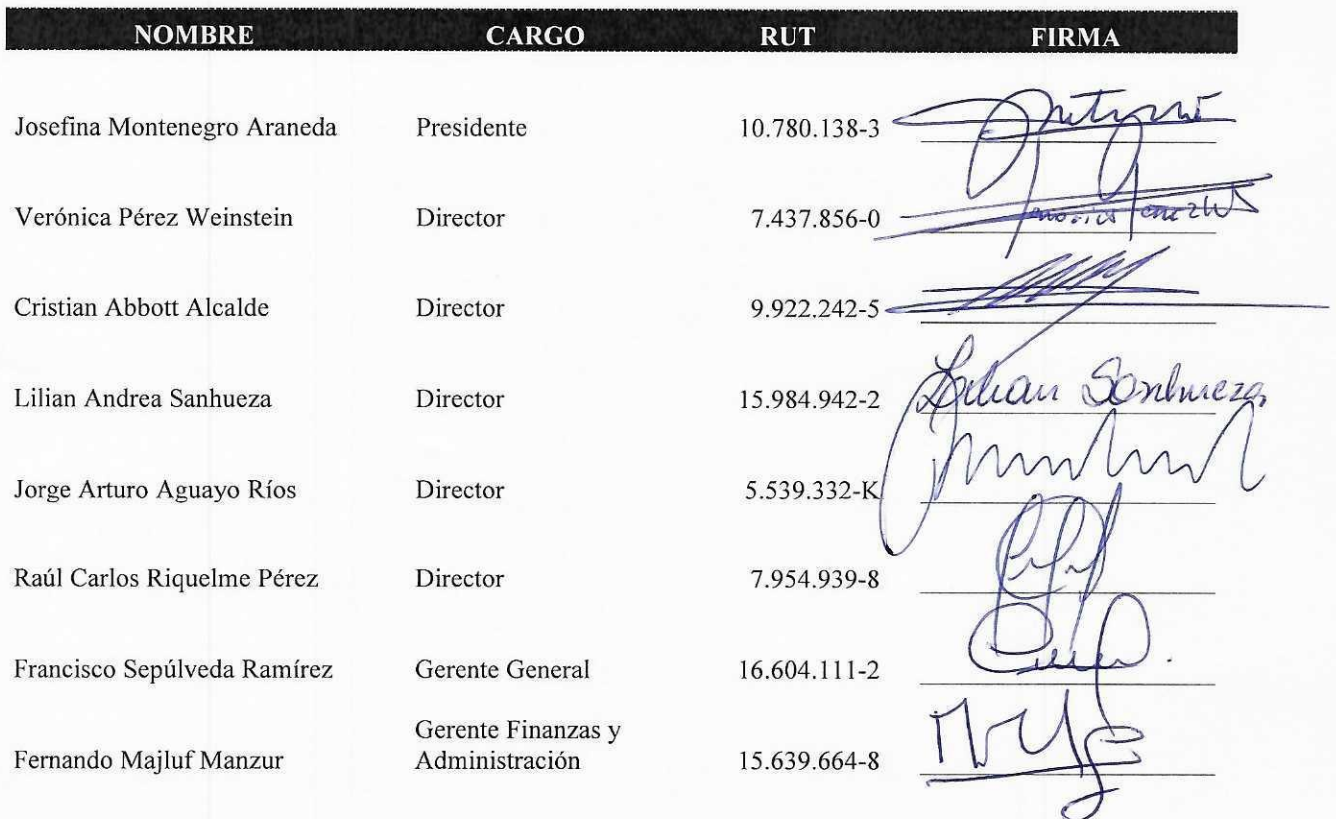 NOMBRE CARGO RUT FIRMA
Josefina Montenegro Araneda Presidente 10.780.138-3
Verónica Pérez Weinstein Director 7.437.856-0
Cristian Abbott Alcalde Director 9.922.242-5
Lilian Andrea Sanhueza Director 15.984.942-2 Lilian Sanhueza
Jorge Arturo Aguayo Ríos Director 5.539.332-K
Raúl Carlos Riquelme Pérez Director 7.954.939-8
Francisco Sepúlveda Ramírez Gerente General 16.604.111-2
Gerente Finanzas y
Fernando Majluf Manzur Administración 15.639.664-8